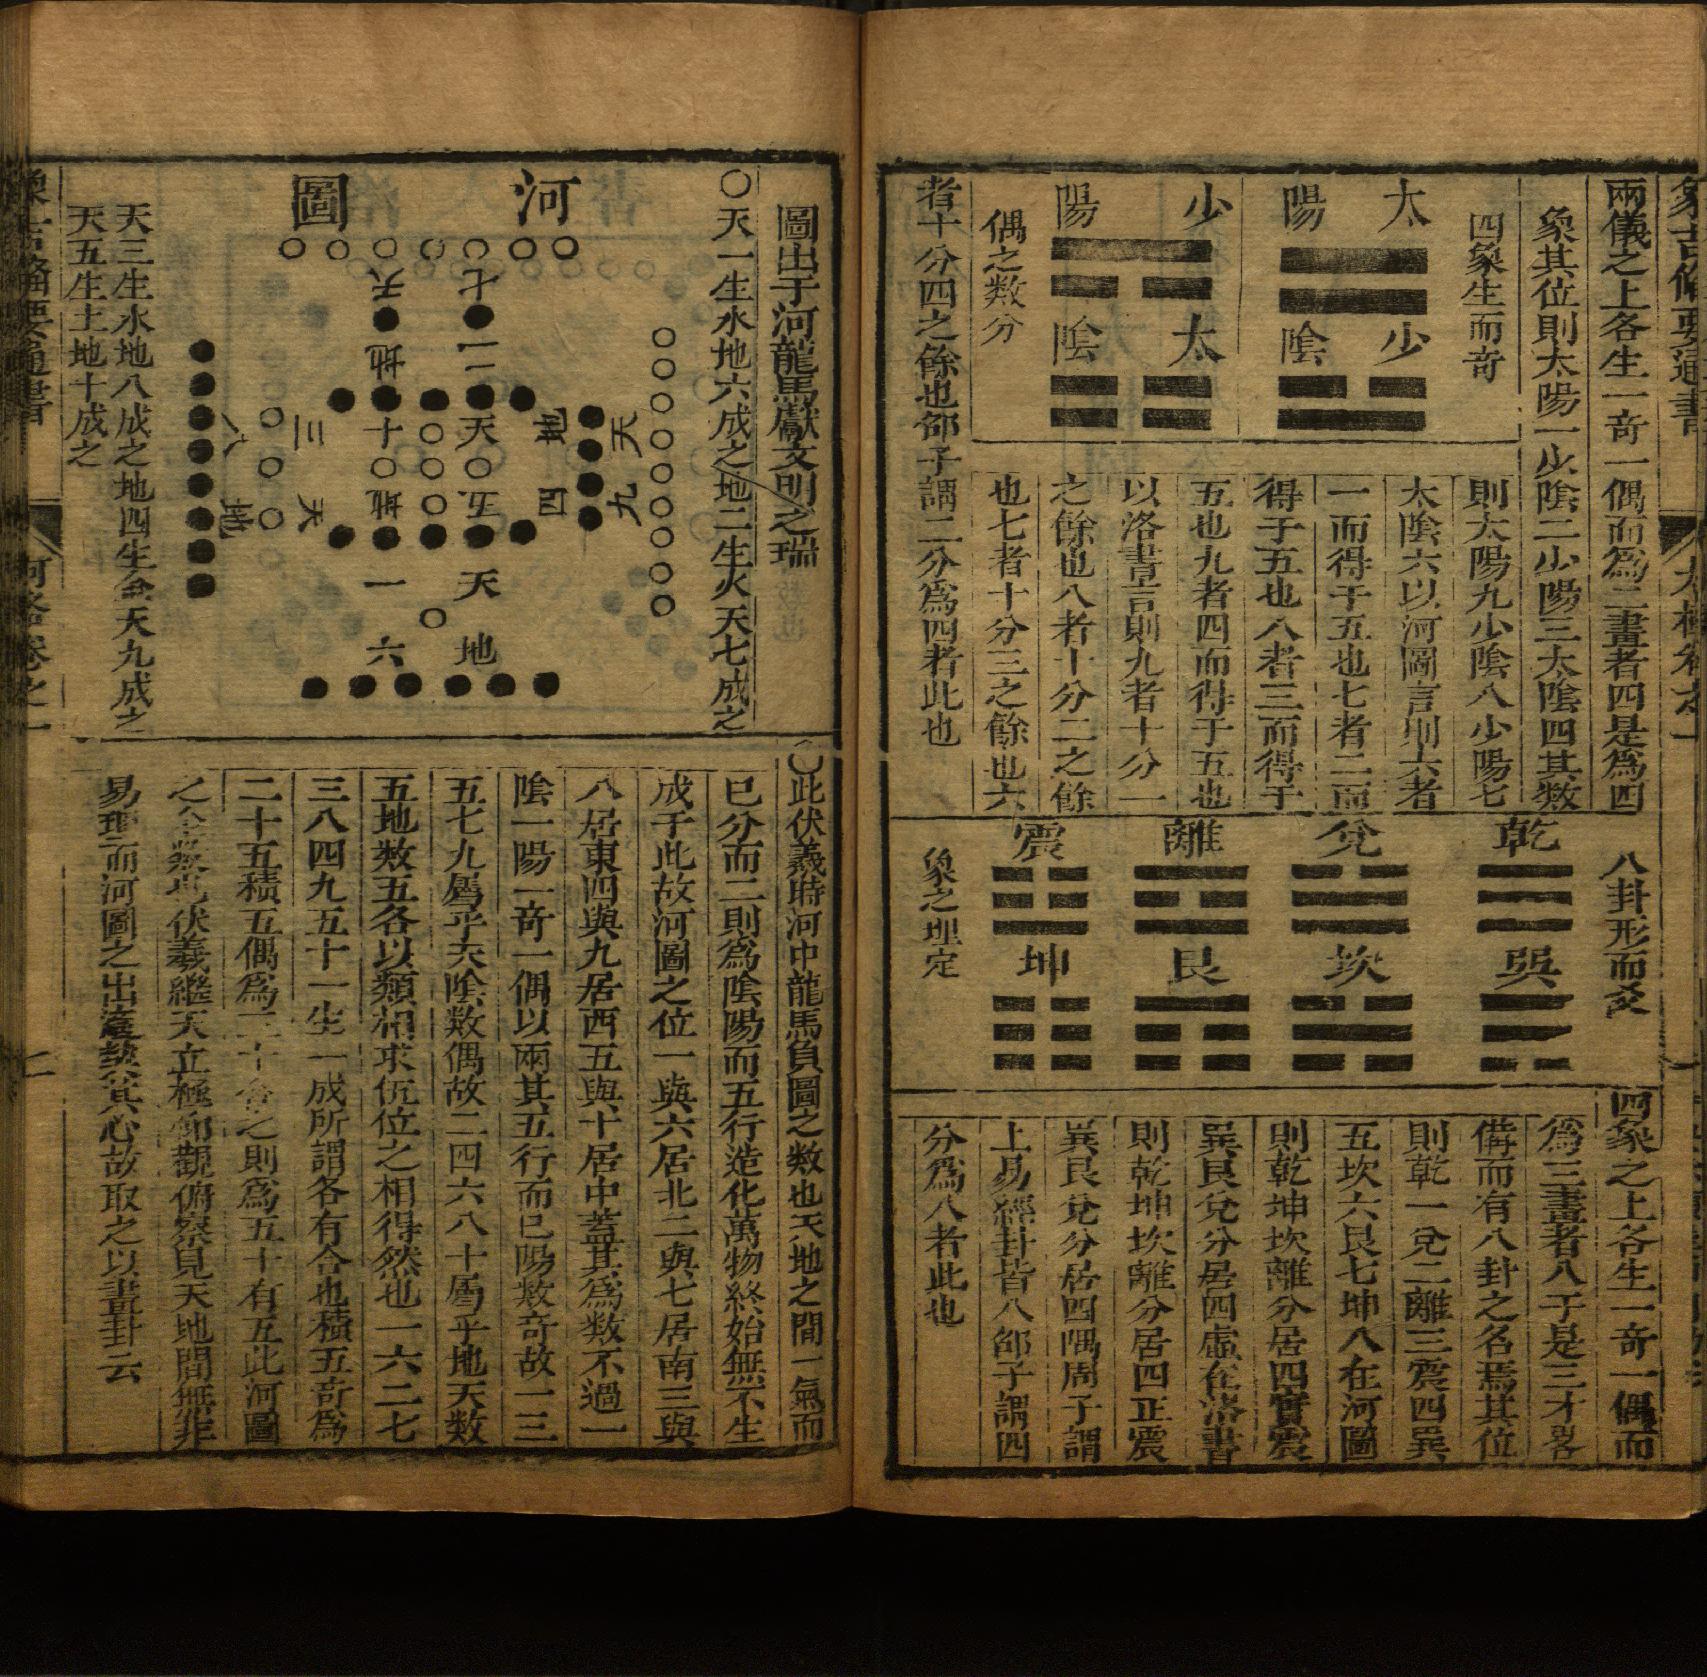 象吉備要通書
太極卷之一
兩儀之上各生一奇一偶而為二畫者四是為四
象其位則太陽一少陰二少陽三太陰四其數
四象生而奇
太陽
少陰
少陽
太陰
偶之數分
則太陽九少陰八少陽七
太陰六以河圖言則六者
一而得于五也七者二而
得于五也八者三而得于
五也九者四而得于五也
以洛書言則九者十分一
之餘也八者十分二之餘
也七者十分三之餘也六
者十分四之餘也邵子謂二分爲四者此也
八卦形而爻
乾
兌
離
震
巽
坎
艮
坤
象之理定
四象之上各生一奇一偶而
爲三畫者八于是三才畧
備而有八卦之名焉其位
則乾一兌二離三震四巽
五坎六艮七坤八在河圖
則乾坤坎離分居四實震
巽艮兌分居四虛在洛書
則乾坤坎離分居四正震
巽艮兌分居四隅周子謂
上易經卦皆八邵子謂四
分爲八者此也
圖出于河龍馬獻文明之瑞
〇天一生水地六成之地二生火天七成之
河圖
七天
二地
天五
十地
地四
天九
三天
八地
天一
地六
天三生水地八成之地四生金天九成之
天五生土地十成之
〇此伏羲時河中龍馬負圖之數也天地之間一氣而
已分而二則爲陰陽而五行造化萬物終始無不生
成于此故河圖之位一與六居北二與七居南三與
八居東四與九居西五與十居中蓋其爲數不過一
陰一陽一奇一偶以兩其五行而已陽數奇故一三
五七九屬乎天陰數偶故二四六八十屬乎地天數
五地數五各以類相求伍位之相得然也一六二七
三八四九五十一生一成所謂各有合也積五奇爲
二十五積五偶爲三十合之則爲五十有五此河圖
之全數也伏羲繼天立極仰觀俯察見天地間無非
易理而河圖之出適契其心故取之以畫卦云
象吉備要通書
河洛卷之一
二